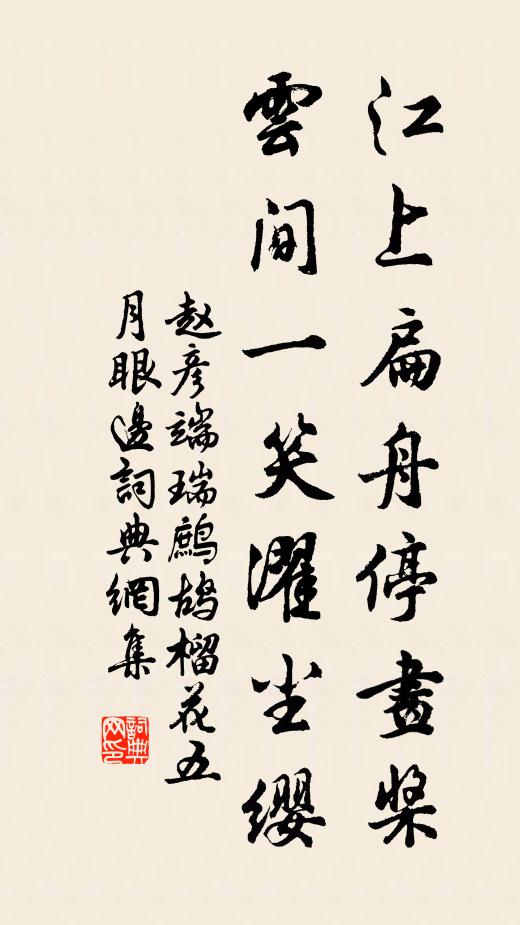 江上扁舟停畫桨
雲間一笑濯尘缨
赵彦端瑞鷓鸪榴花五
月眼邊詞典網集
詞典
网印